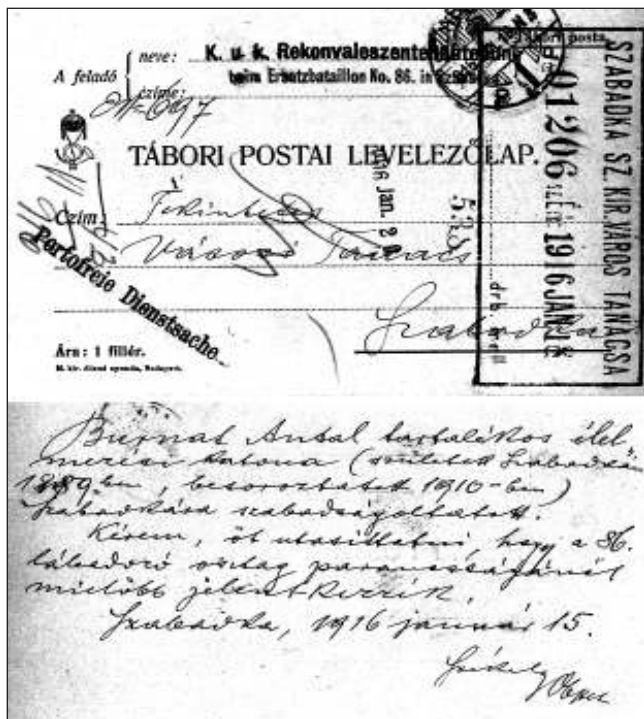 A feladó
neve: K. u. k. Rekonvaleszentenabteilung
czíme: beim Ersatzbataillon No. 86. in
Tábori posta.
TÁBORI POSTAI LEVELEZŐLAP.
Czím: Tekintetes
Városi Tanács
Szabadka
Portofreie Dienstsache
Ára: 1 fillér.
M. kir. állami nyomda, Budapest.
SZABADKA SZ. KIR. VÁROS TANÁCSA
01206 1916 JAN
drb
Burnat Antal tartalékos élel
mezési katona (született Szabadkán
1889 ben, besoroztatott 1910-ben)
Szabadkára szabadságoltatott.
Kérem, őt utasíttatni, hogy a 86.
lábadozó osztag parancsnokságánál
mielőbb jelentkezzék.
Szabadka, 1916 január 15.
Székely